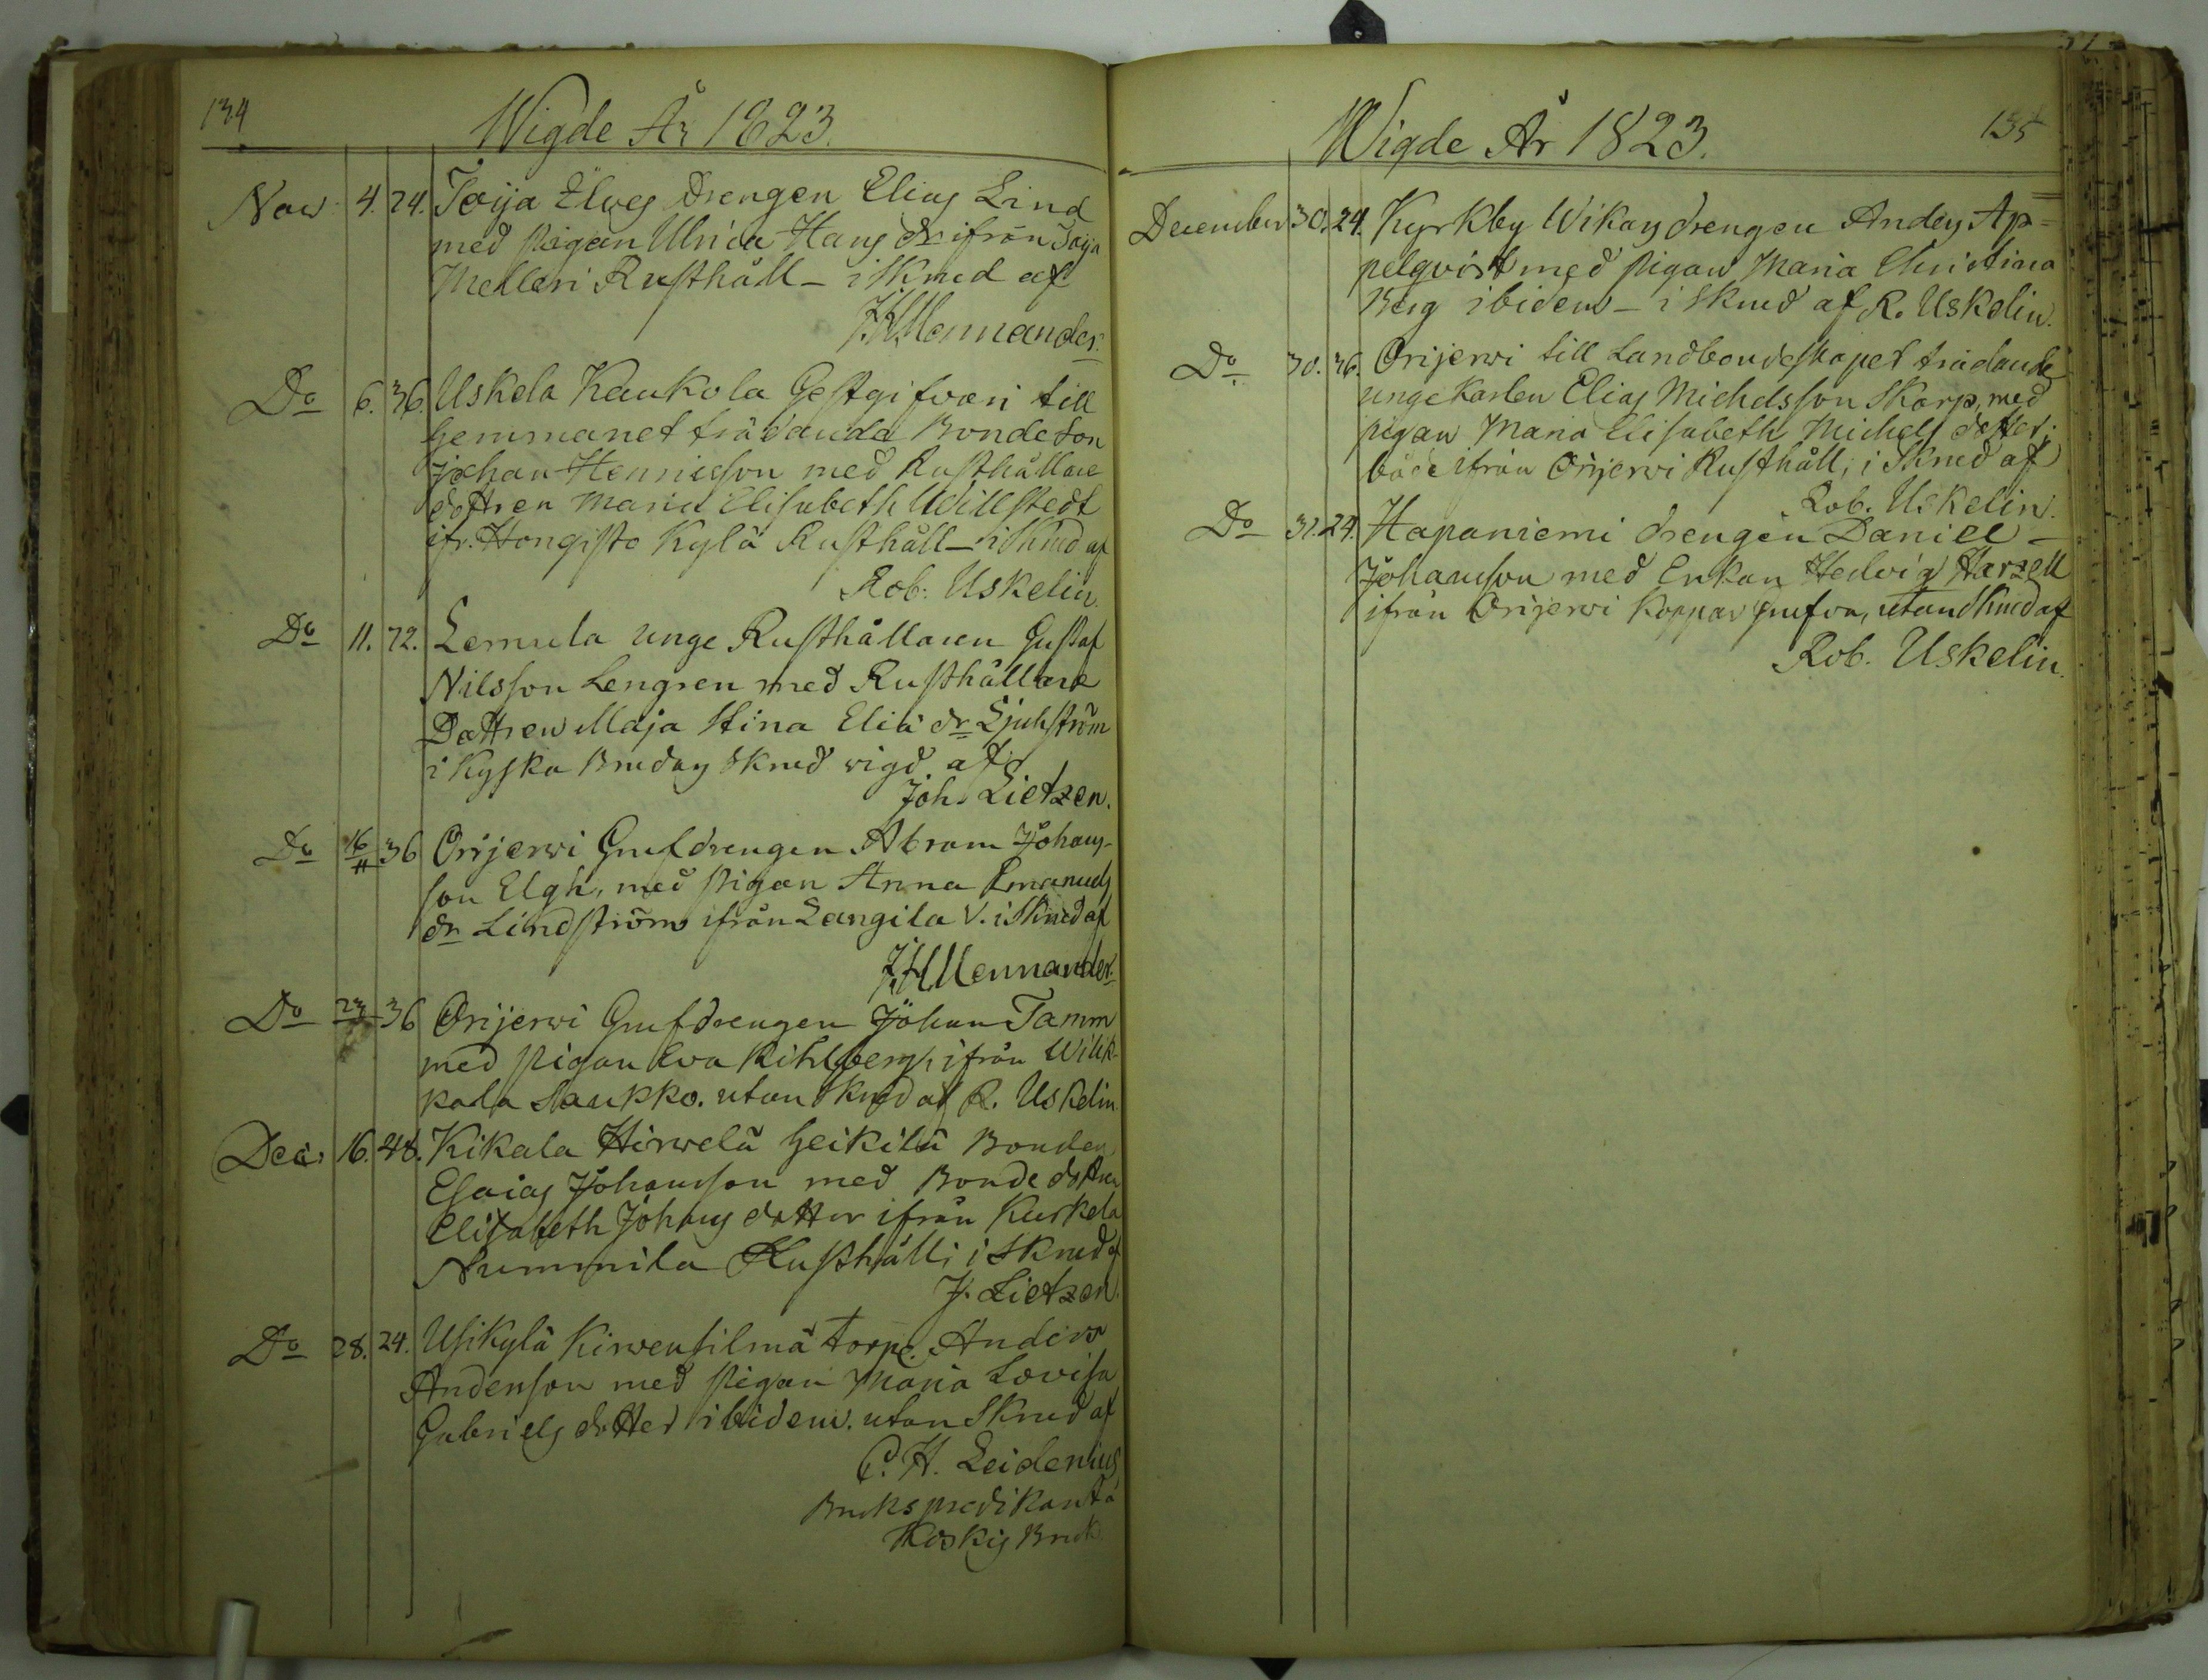 134
Wigde År 1823.
Nov: 4. 24. Toija Elves drengen Elias Lind
med pigan Ulrica Hans dr ifrån Toija
Melleri Rusthåll – i Skrud af
J.H. Mennander.
Do 6. 36. Uskela Kaukola Gestgifveri till
hemmanet trädande Bondeson
Johan Henricsson med Rusthållare
dottren Maria Elisabeth Willstedt
ifr. Hongisto Kylä Rusthåll – i Skrud af
Rob. Uskelin.
Do 11. 72. Lemula unge Rusthållaren Gustaf
Nilsson Lengren med Rusthållare
Dottren Maja Stina Eliæ dr Ljuhström
i Kyska Brudas Skrud vigd af
Joh. Lietzen.
Do 16/11 36 Orijerwi Grufdrengen Abram Johans-
son Elgh, med pigan Anna Emanuels
dr Lindström ifrån Langila V. i Skrud af
J.H. Mennander.
Do 23 36 Orijerwi Grufdrengen Johan Tamm
med pigan Eva Kihlberg, ifrån Wilik-
kala Saukko. utan Skrud af R. Uskelin.
Dec: 16. 48. Kikala Hirvelä Heikilä Bonden
Esaias Johansson med Bonde dottren
Elisabeth Johans dotter ifrån Kurkela
Nummila Rusthåll; i Skrud af
J. Lietzen.
Do 28. 24. Usikylä Kirvensilmä torp. Anders
Andersson med pigan Maria Lovisa
Gabriels dotter ibidem. utan Skrud af
C. H. Zeidenius
Bruks predikant å
Koskis Bruk.
135
Wigde År 1823.
December 30. 24. Kyrkby Wikars drengen Anders Ap-
pelqvist med pigan Maria Christina
Berg ibidem – i Skrud af R. Uskelin.
Do 30. 36. Orijerwi till Landbondeskapet trädande
unge Karlen Elias Michelsson Skarp, med
pigan Maria Elisabeth Michels dotter;
både ifrån Orijerwi Rusthåll; i Skrud af
Rob. Uskelin.
Do 31. 24. Haapaniemi drengen Daniel –
Johansson med Enkan Hedvig Harzell
ifrån Orijerwi Koppar Grufva, utan Skrud af
Rob. Uskelin.